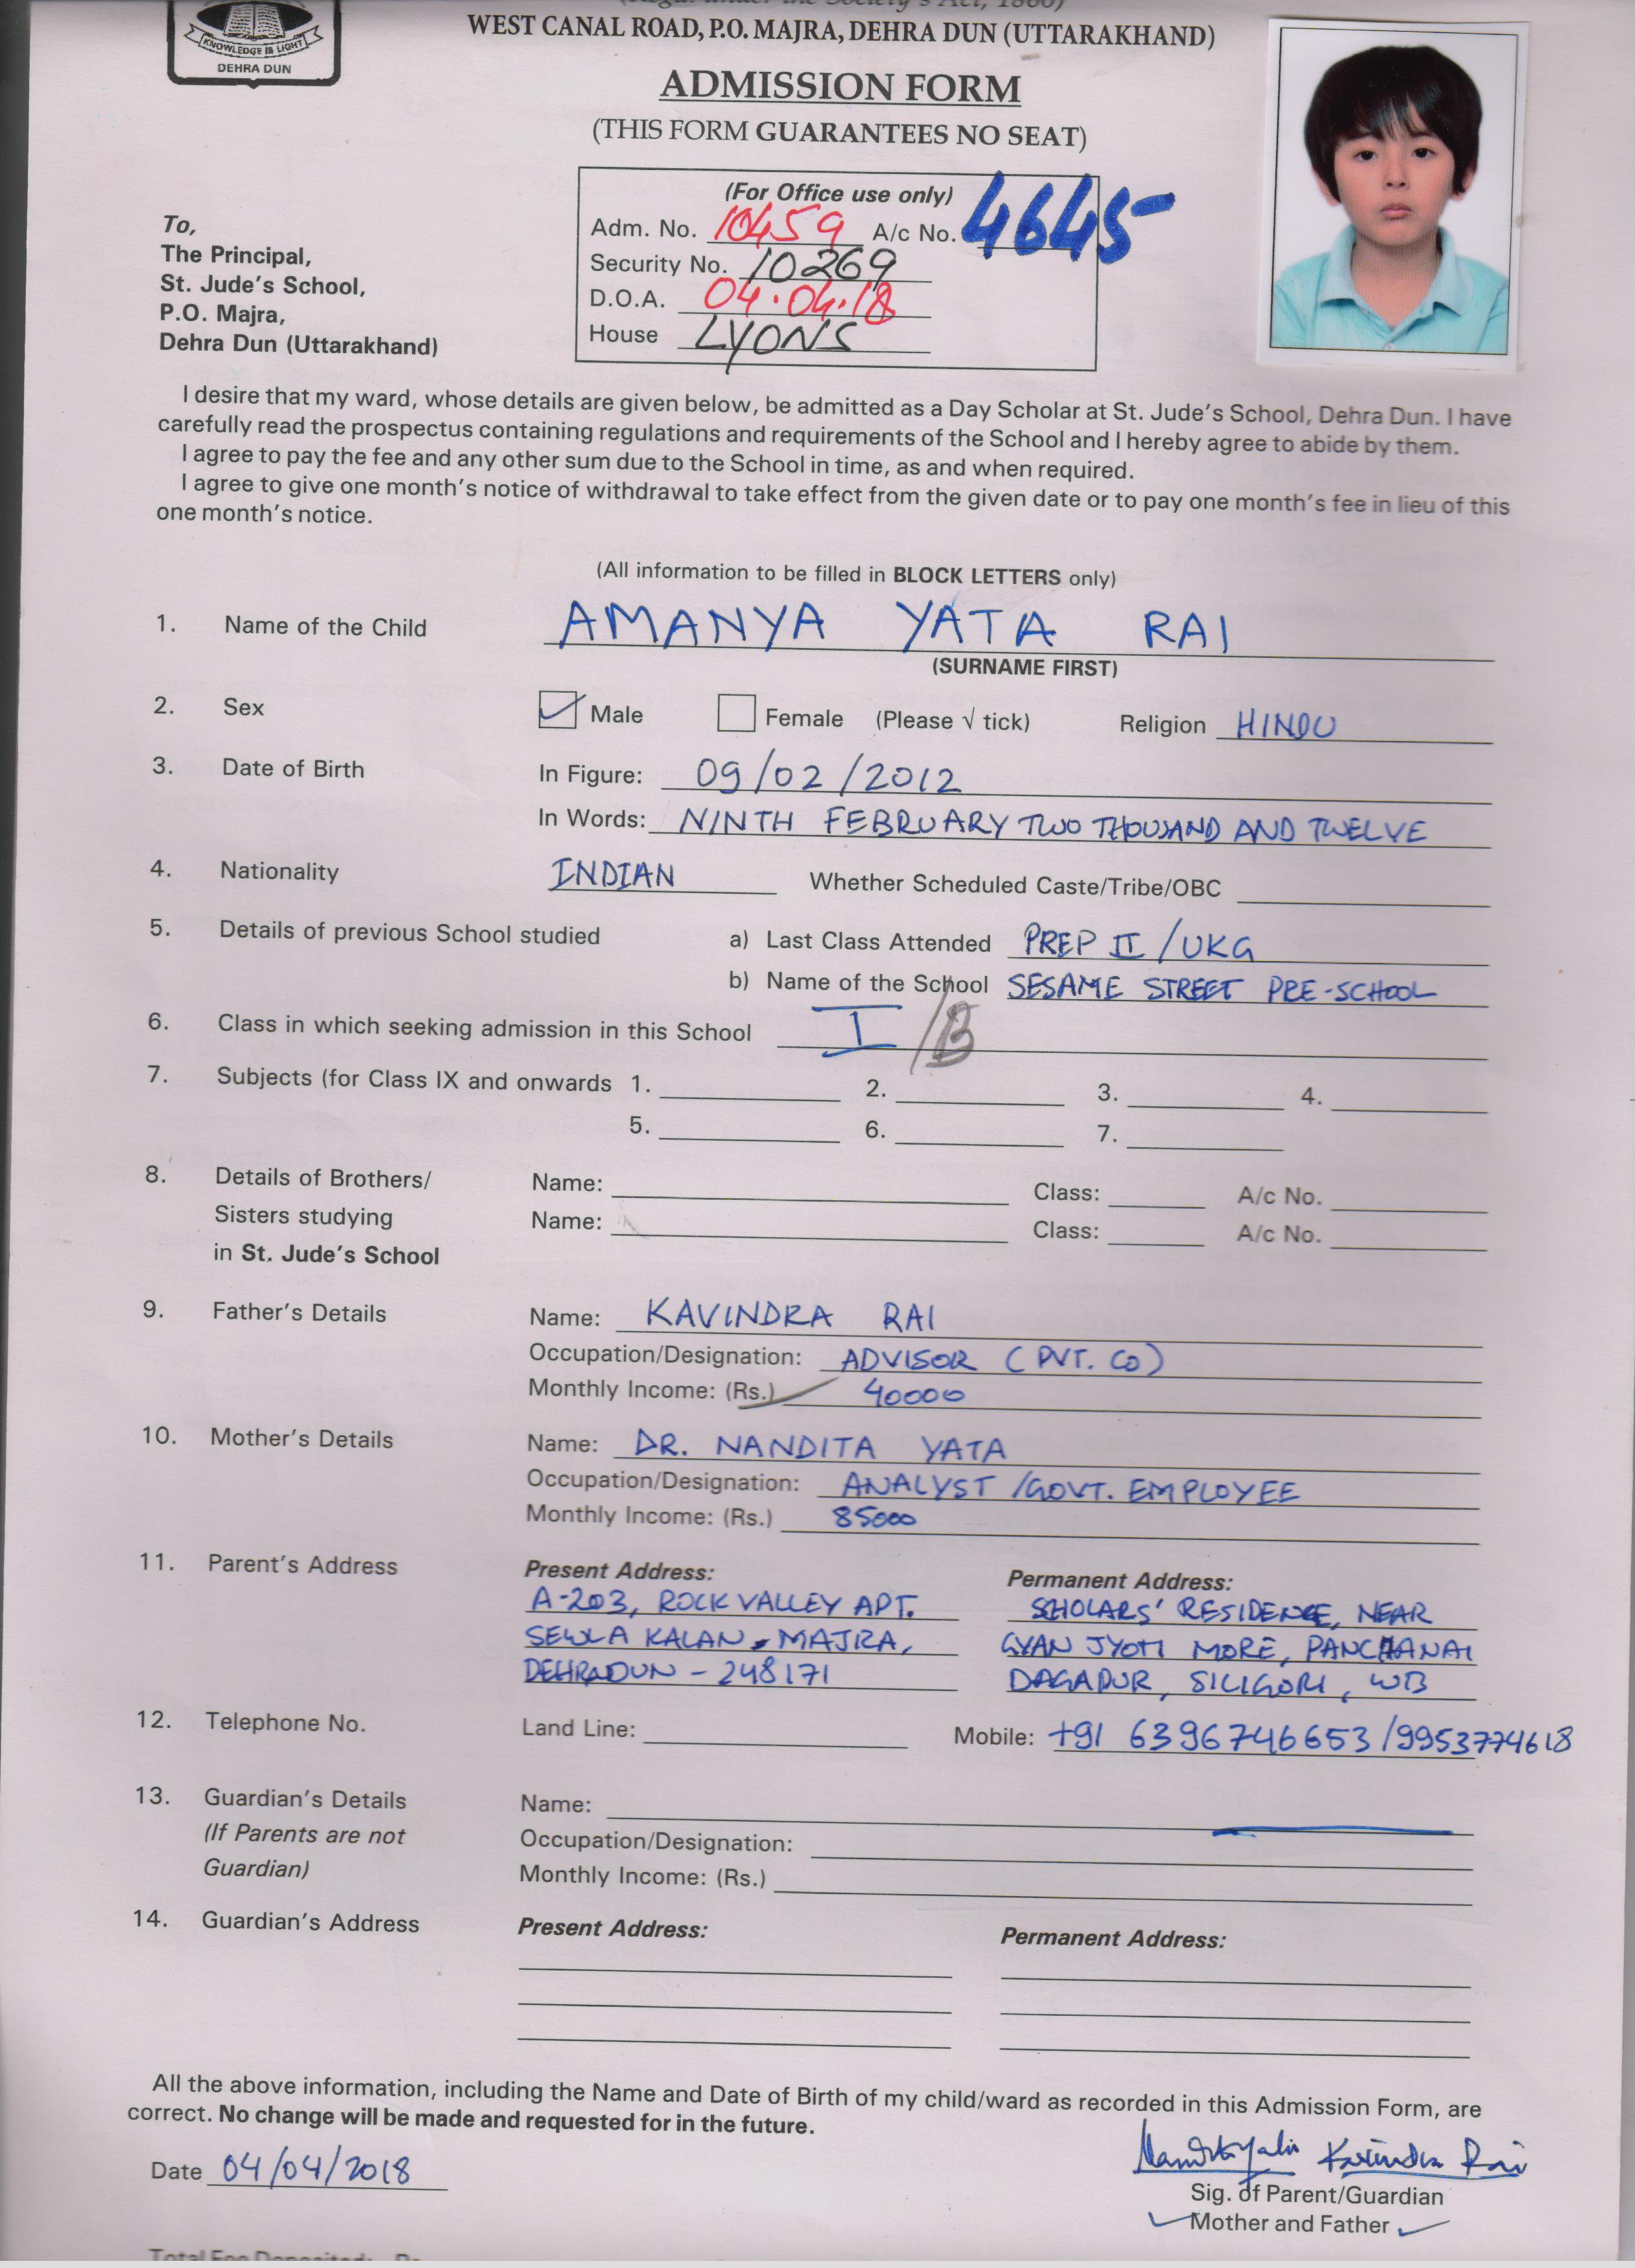 (Regd. under the Society's Act, 1860)
WEST CANAL ROAD, P.O. MAJRA, DEHRA DUN (UTTARAKHAND)
KNOWLEDGE IS LIGHT
DEHRA DUN
ADMISSION FORM
(THIS FORM GUARANTEES NO SEAT)
(For Office use only)
Adm. No. 10459 A/c No. 4645
Security No. 10269
D.O.A. 04.04.18
House LYONS
To,
The Principal,
St. Jude's School,
P.O. Majra,
Dehra Dun (Uttarakhand)
I desire that my ward, whose details are given below, be admitted as a Day Scholar at St. Jude's School, Dehra Dun. I have
carefully read the prospectus containing regulations and requirements of the School and I hereby agree to abide by them.
I agree to pay the fee and any other sum due to the School in time, as and when required.
I agree to give one month's notice of withdrawal to take effect from the given date or to pay one month's fee in lieu of this
one month's notice.
(All information to be filled in BLOCK LETTERS only)
1. Name of the Child AMANYA YATA RAI
(SURNAME FIRST)
2. Sex Male Female (Please √ tick) Religion HINDU
3. Date of Birth In Figure: 09/02/2012
In Words: NINTH FEBRUARY TWO THOUSAND AND TWELVE
4. Nationality INDIAN Whether Scheduled Caste/Tribe/OBC
5. Details of previous School studied a) Last Class Attended PREP II /UKG
b) Name of the School SESAME STREET PRE-SCHOOL
6. Class in which seeking admission in this School I /B
7. Subjects (for Class IX and onwards 1. 2. 3. 4.
5. 6. 7.
8. Details of Brothers/ Name: Class: A/c No.
Sisters studying Name: Class: A/c No.
in St. Jude's School
9. Father's Details Name: KAVINDRA RAI
Occupation/Designation: ADVISOR (PVT. CO)
Monthly Income: (Rs.) 40000
10. Mother's Details Name: DR. NANDITA YATA
Occupation/Designation: ANALYST /GOVT. EMPLOYEE
Monthly Income: (Rs.) 85000
11. Parent's Address Present Address: Permanent Address:
A-203, ROCK VALLEY APT. SCHOLARS' RESIDENCE, NEAR
SEWLA KALAN, MAJRA, GYAN JYOTI MORE, PANCHANAI
DEHRADUN - 248171 DAGAPUR, SILIGORI, WB
12. Telephone No. Land Line: Mobile: +91 6396746653/9953774618
13. Guardian's Details Name:
(If Parents are not Occupation/Designation:
Guardian) Monthly Income: (Rs.)
14. Guardian's Address Present Address: Permanent Address:
All the above information, including the Name and Date of Birth of my child/ward as recorded in this Admission Form, are
correct. No change will be made and requested for in the future.
Date 04/04/2018 Kavindra Rai
Sig. of Parent/Guardian
Mother and Father
Total Fee Deposited: Rs.